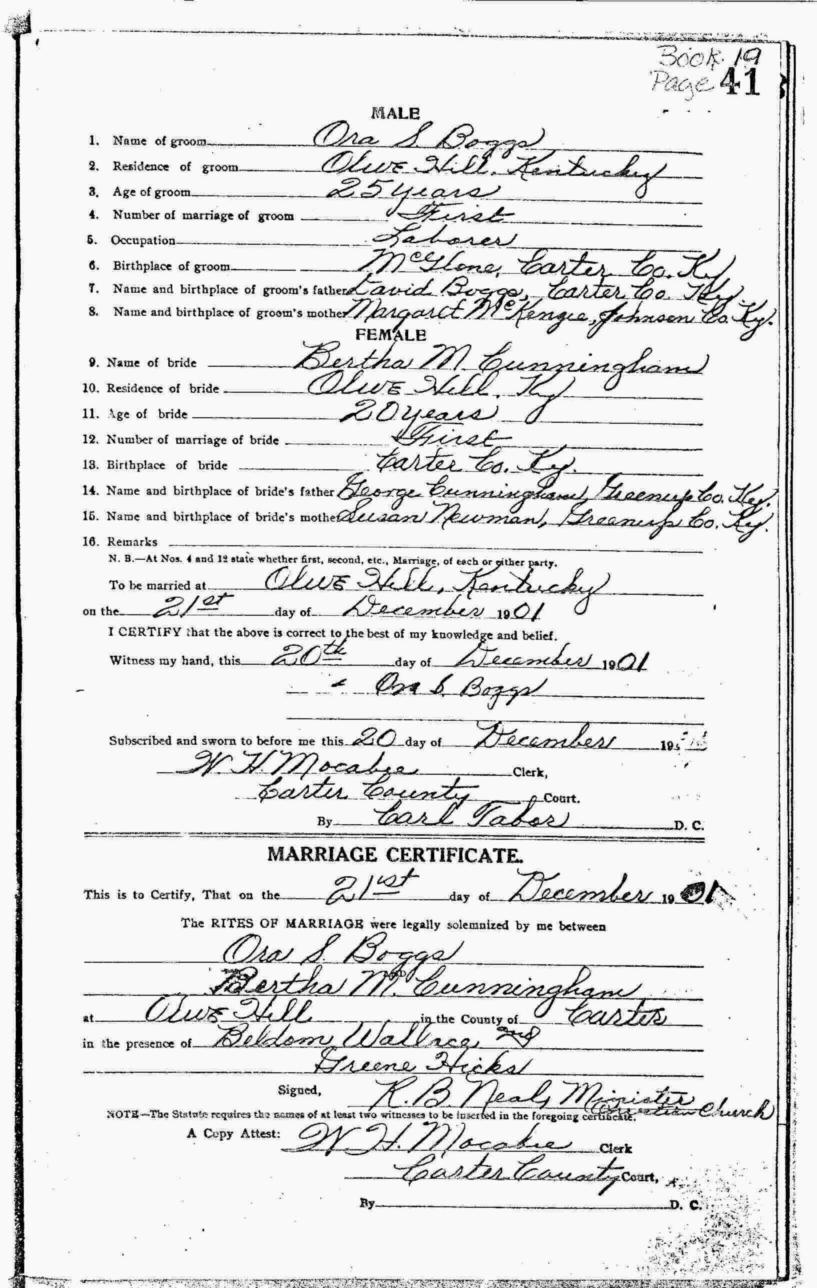 Book 19
Page 41
MALE
1. Name of groom Ora S Boggs
2. Residence of groom Olive Hill, Kentucky
3. Age of groom 25 years
4. Number of marriage of groom First
5. Occupation Laborer
6. Birthplace of groom McGlone, Carter Co. Ky
7. Name and birthplace of groom's father David Boggs, Carter Co. Ky
8. Name and birthplace of groom's mother Margaret McKenzie, Johnson Co. Ky.
FEMALE
9. Name of bride Bertha M. Cunningham
10. Residence of bride Olive Hill, Ky
11. Age of bride 20 years
12. Number of marriage of bride First
13. Birthplace of bride Carter Co. Ky.
14. Name and birthplace of bride's father George Cunningham, Greenup Co. Ky.
15. Name and birthplace of bride's mother Susan Newman, Greenup Co. Ky.
16. Remarks
N. B.—At Nos. 4 and 12 state whether first, second, etc., Marriage, of each or either party.
To be married at Olive Hill, Kentucky
on the 21st day of December 1901
I CERTIFY that the above is correct to the best of my knowledge and belief.
Witness my hand, this 20th day of December 1901
Ora S. Boggs
Subscribed and sworn to before me this 20 day of December 19
W. H. Mocabee Clerk,
Carter County Court.
By Carl Tabor D. C.
MARRIAGE CERTIFICATE.
This is to Certify, That on the 21st day of December 1901
The RITES OF MARRIAGE were legally solemnized by me between
Ora S. Boggs
Bertha M. Cunningham
at Olive Hill in the County of Carter
in the presence of Beldom Wallace and
Greene Hicks
Signed, R. B. Neal, Minister
Christian Church
NOTE—The Statute requires the names of at least two witnesses to be inserted in the foregoing certificate.
A Copy Attest: W. H. Mocabee Clerk
Carter County Court,
By D. C.